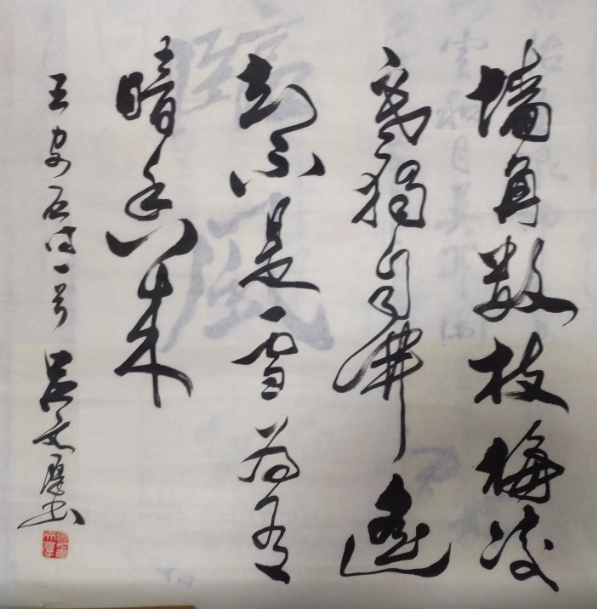 墙角数枝梅凌
寒独自開遥
知不是雪为有
暗香来
王安石诗一首 吴文厚书